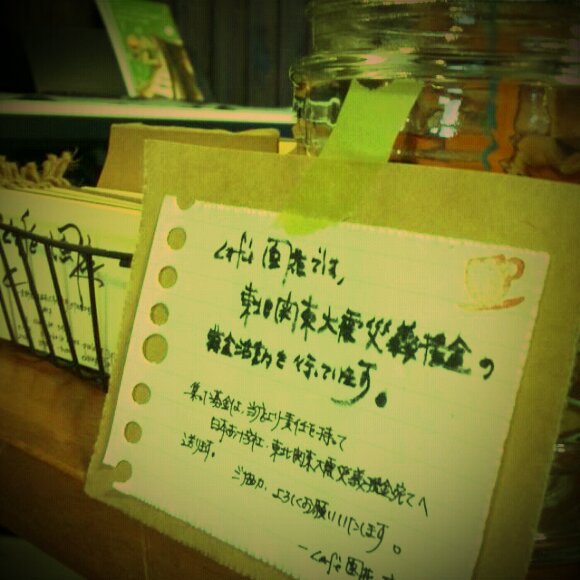 cafe 風花です。
東北関東大震災義援金の
募金活動を行っています。
集った募金は、当店より責任を持って
日本赤十字社、東北関東大震災義援金宛てへ
送ります。
ご協力、よろしくお願いいたします。
ーcafe
cafe